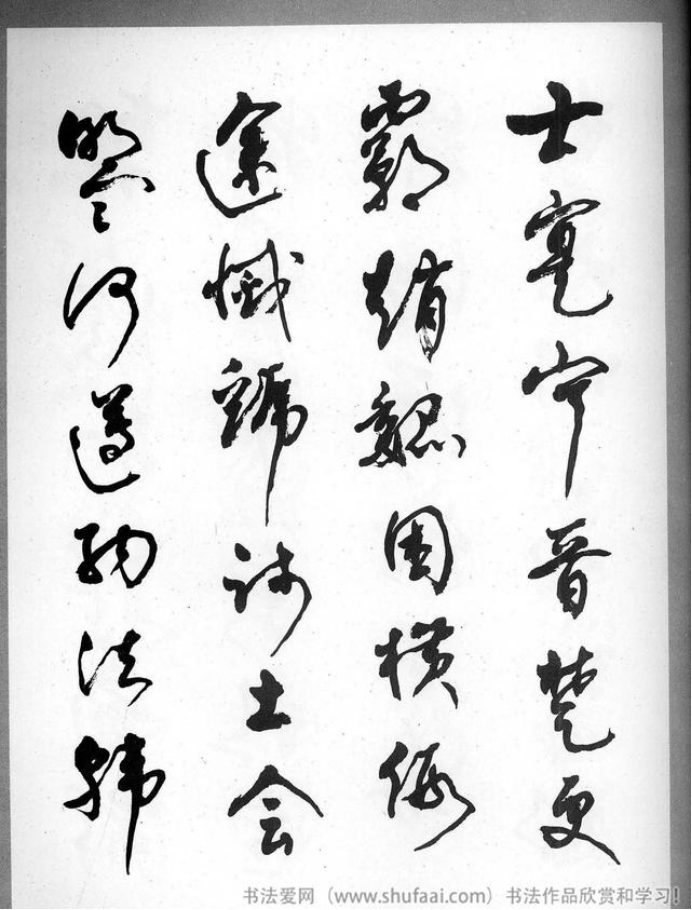 士寔宁晋楚更
霸趙魏困横假
途滅虢踐土会
盟何遵約法韓
书法爱网（www.shufaai.com）书法作品欣赏和学习！